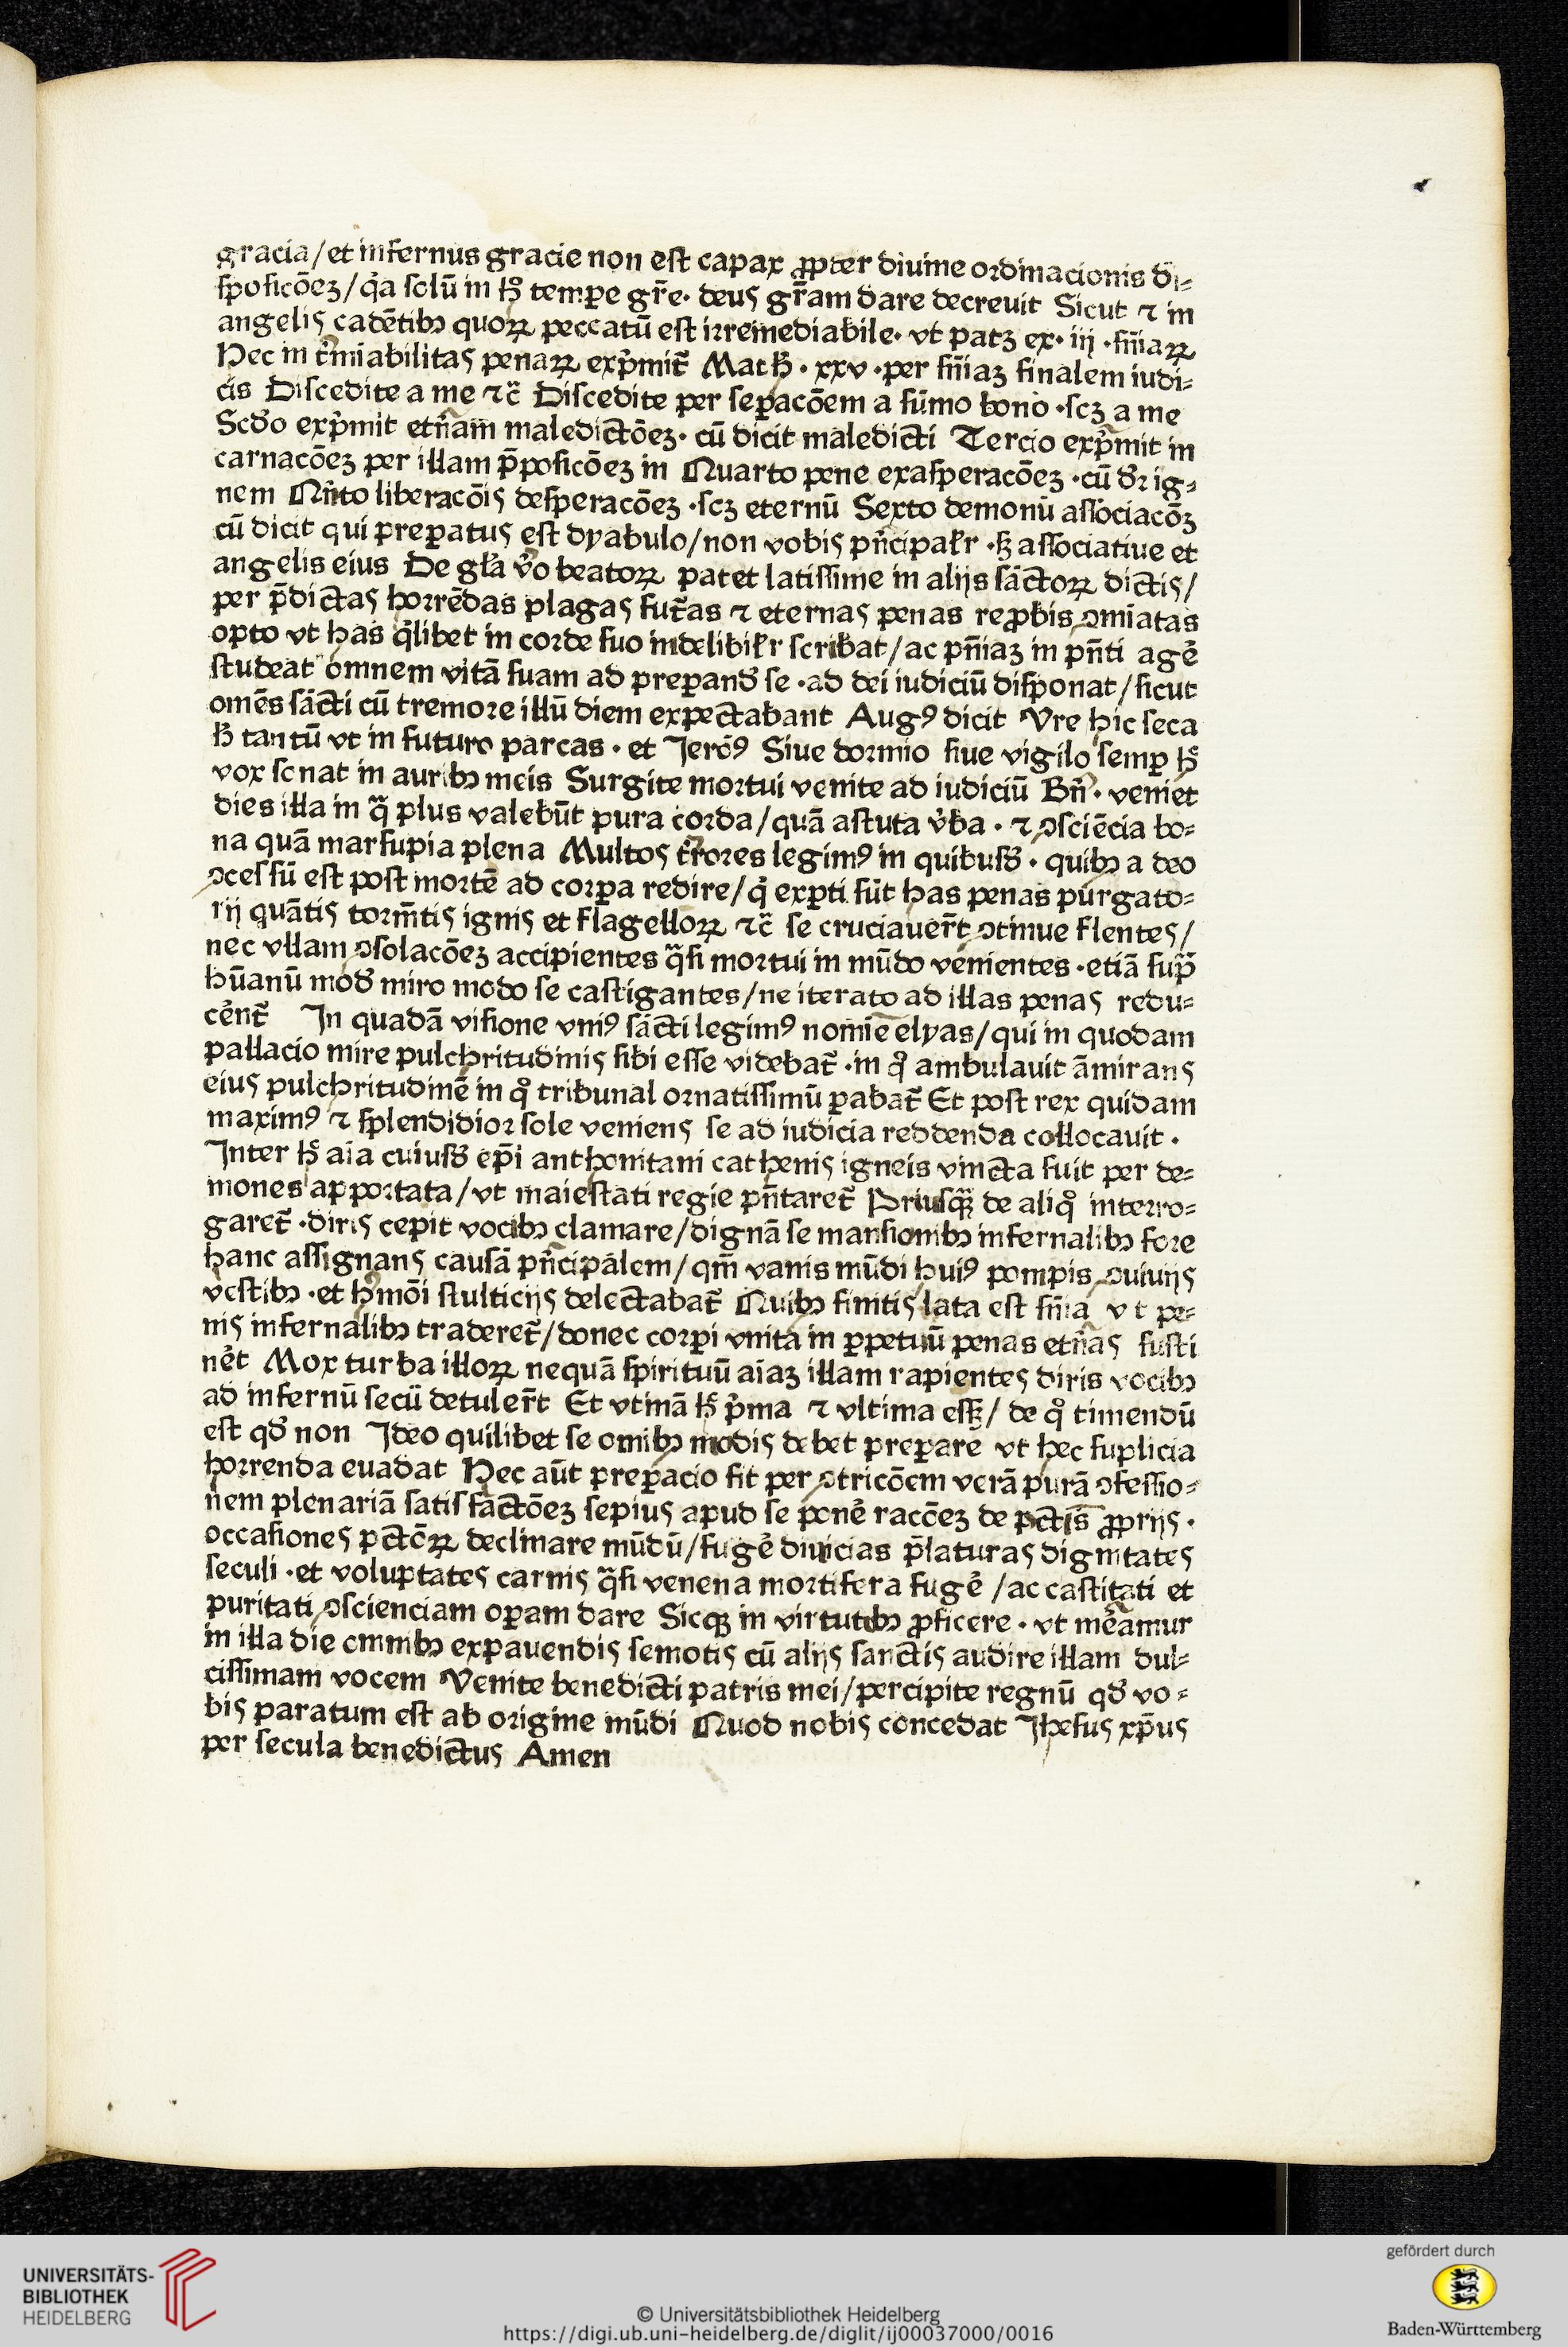 gracia/et infernus gracie non est capax ꝓpter diuine ordinacionis di⸗
ſpoſicōeꝫ/q̇a ſolū in hͦ tempe gr̄e· deus gr̄am dare decreuit Sicut ⁊ in
angelis cadētibꝫ quoꝝ peccatū est irremediabile· vt patꝫ ex· iij ·ſn̄iaꝝ
Hec in t̓miabilitas penaꝝ exp̓mit᷑ Math· xxv ·per ſn̄iaꝫ finalem iudi⸗
cis Diſcedite a me ⁊c̄ Diſcedite per ſeꝑacōem a ſūmo bono ·ſcꝫ a me
Scd̓o exp̓mit etn̄am maledictōeꝫ· cū dicit maledicti Tercio exp̓mit in
carnacōeꝫ per illam p̄poſicōeꝫ in Quarto pene exaſperacōeꝫ ·cū dr̄ ig⸗
nem Qn̓to liberacōis deſperacōeꝫ ·ſcꝫ eternū Sexto demonū aſſociacōꝫ
cū dicit qui preꝑatus est dyabulo/non vobis pn̄cipalr̄ ·ſꝫ aſſociatiue et
angelis eius De gl̄a v̓o beatoꝝ patet latiſſime in alijs ſāctoꝝ dictis/
per p̄dictas horrēdas plagas fut᷑as ⁊ eternas penas reꝓbis ꝯmiatas
opto vt has q̇libet in corde ſuo indelibilr̄ ſcribat/ac pn̄iaꝫ in pn̄ti age᷑
ſtudeat omnem vitā ſuam ad preꝑand̓ ſe ·ad dei iudiciū diſponat/ſicut
omēs ſācti cū tremore illū diem expectabant Augꝰ dicit Vre hic ſeca
hͨ tantū vt in futuro parcas · et Jeroꝰ Siue dormio ſiue vigilo ſemꝑ hͨ
vox ſonat in auribꝫ meis Surgite mortui venite ad iudiciū Bn̄ꝰ· veniet
dies illa in qᷓ plus valebūt pura corda/quā aſtuta v̓ba · ⁊ ꝯſciēcia bo⸗
na quā marſupia plena Multos t̓rores legimꝰ in quibuſd̓ · quibꝫ a deo
ꝯceſſū est poſt mortē ad corꝑa redire/q̇ exꝑti ſūt has penas purgato⸗
rij quātis torm̄tis ignis et flagelloꝝ ⁊c̄ ſe cruciauer̄t ꝯtinue flentes/
nec vllam ꝯſolacōeꝫ accipientes qᷓſi mortui in mūdo venientes ·etiā ſupᷓ
hūanū mod̓ miro modo ſe caſtigantes/ne iterato ad illas penas redu⸗
ce᷑nt᷑ In quadā viſione vniꝰ ſācti legimꝰ nomīe elyas/qui in quodam
pallacio mire pulchritudinis ſibi eſſe videbat᷑ ·in qͦ ambulauit āmirans
eius pulchritudinē in qͦ tribunal ornatiſſimū ꝑabat᷑ Et poſt rex quidam
maximꝰ ⁊ ſplendidior ſole veniens ſe ad iudicia reddenda collocauit ·
Inter hͨ aīa cuiuſd̓ ep̄i anthonitani cathenis igneis vincta fuit per de⸗
mones apportata/vt maieſtati regie pn̄taret᷑ Priuſqᷓꝫ de aliqͦ interro⸗
garet᷑ ·diris cepit vocibꝫ clamare/dignā ſe manſionibꝫ infernalibꝫ fore
hanc aſſignans cauſā pn̄cipalem/qm̄ vanis mūdi huiꝰ pompis ꝯuiuijs
veſtibꝫ ·et hꝰmōi ſtulticijs delectabat᷑ Quibꝫ finitis lata est ſn̄ia vt pe⸗
nis infernalibꝫ traderet᷑/donec corꝑi vnita in ꝑpetuū penas etn̄as ſuſti
ne᷑t Mox turba illoꝝ nequā ſpirituū aīaꝫ illam rapientes diris vocibꝫ
ad infernū ſecū detuler̄t Et vtinā hͨ p̓ma ⁊ vltima eſſꝫ/ de qͦ timendū
est qd̓ non Ideo quilibet ſe omībꝫ modis debet preꝑare vt hec ſuplicia
horrenda euadat Hec aūt preꝑacio fit per ꝯtricōem verā purā ꝯfeſſio⸗
nem plenariā ſatiſfactōeꝫ ſepius apud ſe pone᷑ racōeꝫ de pctīs ꝓprijs ·
occaſiones pctōꝝ declinare mūdū/fuge᷑ diuicias p̄laturas dignitates
ſeculi ·et voluptates carnis qᷓſi venena mortifera fuge᷑ /ac caſtitati et
puritati ꝯſcienciam oꝑam dare Sicqꝫ in virtutibꝫ ꝓficere · vt me᷑amur
in illa die omnibꝫ expauendis ſemotis cū alijs ſanctis audire illam dul⸗
ciſſimam vocem Venite benedicti patris mei/percipite regnū qd̓ vo⸗
bis paratum est ab origine mūdi Quod nobis concedat Iheſus xp̄us
per ſecula benedictus Amen
UNIVERSITÄTS-
BIBLIOTHEK
HEIDELBERG
© Universitätsbibliothek Heidelberg
https://digi.ub.uni-heidelberg.de/diglit/ij00037000/0016
gefördert durch
Baden-Württemberg